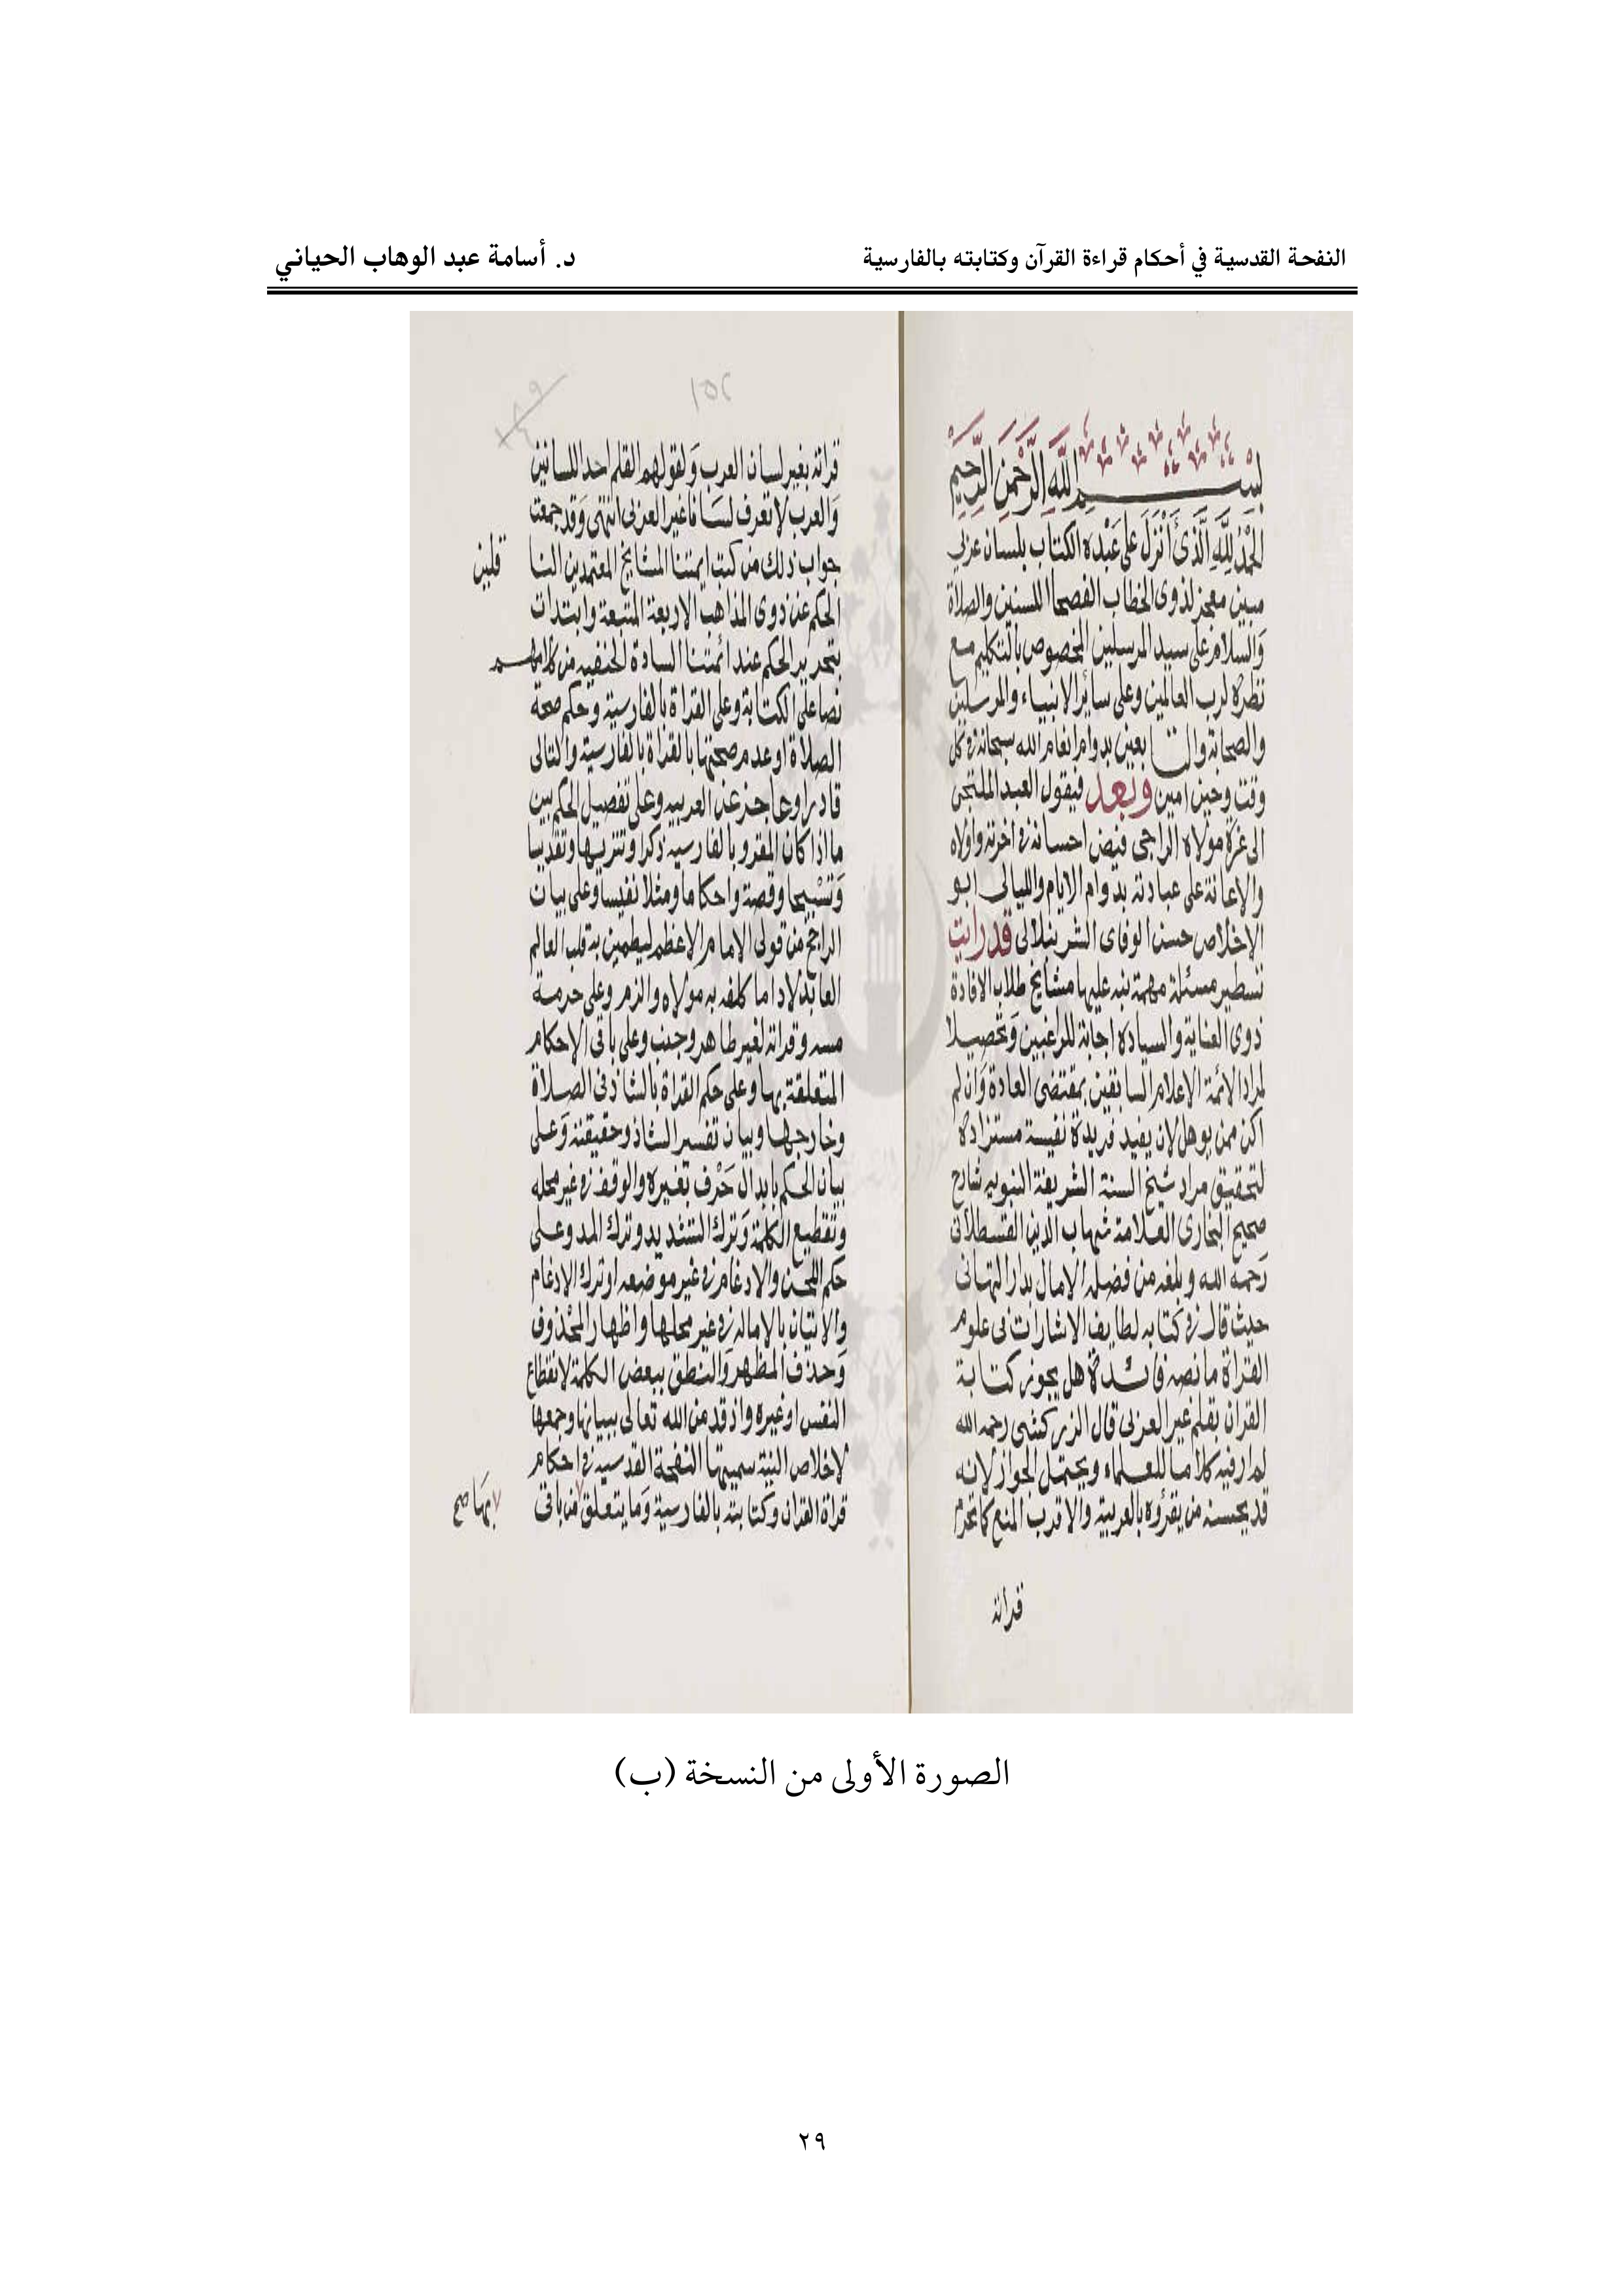 النفحة القدسية في أحكام قراءة القرآن وكتابته بالفارسية
د. أسامة عبد الوهاب الحياني
بسم الله الرحمن الرحيم
الحمد لله الذى أنزل على عبده الكتاب بلسان عربى
مبين معجز لذوى الخطاب الفصحا اللسنين والصلاة
والسلام على سيد المرسلين المخصوص بالتكليم مع
نظره لرب العالمين وعلى سائر الانبياء والمرسلين
والصحابة والتابعين بدوام انعام الله سبحانه فى كل
وقت وحين امين وبعد فيقول العبد الملتجى
الى عزة مولاه الراجى فيض احسانه فى اخرته واولاه
والاعانة على عبادته بدوام الايام والليالى ابو
الاخلاص حسن الوفاى الشرنبلالى قد رايت
تسطير مسئلة مهمة نبه عليها مشايخ طلاب الافادة
ذوى العناية والسيادة اجابة للراغبين وتحصيلا
لمراد الائمة الاعلام السابقين بمقتضى العادة وان لم
اكن ممن يوهل لان يفيد فريدة نفيسة مستزادة
لتحقيق مراد شيخ السنة الشريفة النبويه شارح
صحيح البخارى العلامة شهاب الدين القسطلانى
رحمه الله وبلغه من فضله الامال بدار التهانى
حيث قال فى كتابه لطايف الاشارات فى علوم
القراة ما نصه فائدة هل يجوز كتابة
القران بقلم غير العربى قال الزركشى رحمه الله
لم ار فيه كلاما للعلماء ويحتمل الجواز لانه
قد يحسنه من يقرؤه بالعربية والاقرب المنع كما تحرم
قراته
١٥٢
قراته بغير لسان العرب ولقولهم القلم احد اللسانين
والعرب لا تعرف لسانا غير العربى انتهى وقد جمعت
جواب ذلك من كتب ايمتنا المشايخ المعتمدين النا
قلين
الحكم عن ذوى المذاهب الاربعة المتبعة وابتدات
بتحرير الحكم عند ائمتنا السادة الحنفيه من كلامهم
نصا على الكتابة وعلى القراة بالفارسية وحكم صحة
الصلاة او عدم صحتها بالقراة بالفارسية والتالى
قادر او عاجز عن العربيه وعلى تفصيل الحكم بين
ما اذا كان المقرو بالفارسيه ذكرا وتنزيها وتقديسا
وتسبيحا وقصة واحكاما ومثلا نفيسا وعلى بيان
الراجح من قولى الامام الاعظم ليطمين به قلب العالم
العابد لاداما كلفه به مولاه والزم وعلى حرمة
مسه وقراته لغير طاهر وجنب وعلى باقى الاحكام
المتعلقة بها وعلى حكم القراة بالشاذ فى الصلاة
وخارجها وبيان تفسير الشاذ وحقيقته وعلى
بيان الحكم بابدال حرف بغيره والوقف فى غير محله
وتقطيع الكلمة وترك التشديد وترك المد وعلى
حكم اللحن والادغام فى غير موضعه او ترك الادغام
والاتيان بالاماله فى غير محلها واظهار المحذوف
وحذف المظهر والنطق ببعض الكلمة لانقطاع
النفس او غيره واذ قد من الله تعالى ببيانها وجمعها
لاخلاص النية سميتها النفحة القدسيه فى احكام
قراة القران وكتابته بالفارسية وما يتعلق من باقى
الصورة الأولى من النسخة (ب)
٢٩